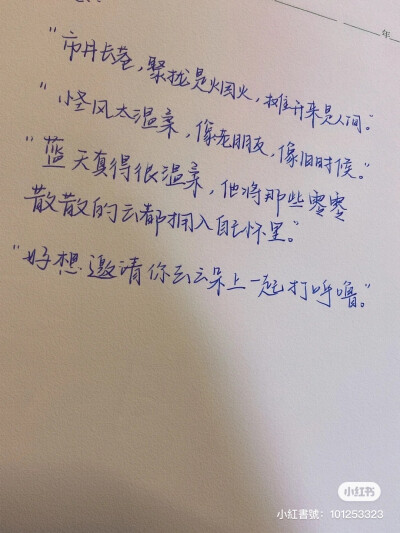 年
"市井长巷，聚拢是烟火，摊开来是人间。"
"怪风太温柔，像老朋友，像旧时候。"
"蓝天真得很温柔，他将那些零零
散散的云都拥入自己怀里。"
"好想邀请你去云朵上一起打呼噜。"
小红书
小紅書號：101253323